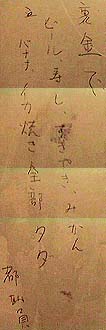 裏金で
ビール、寿し、すきやき、みかん
バナナ、イカ焼き全部タダ
都職員